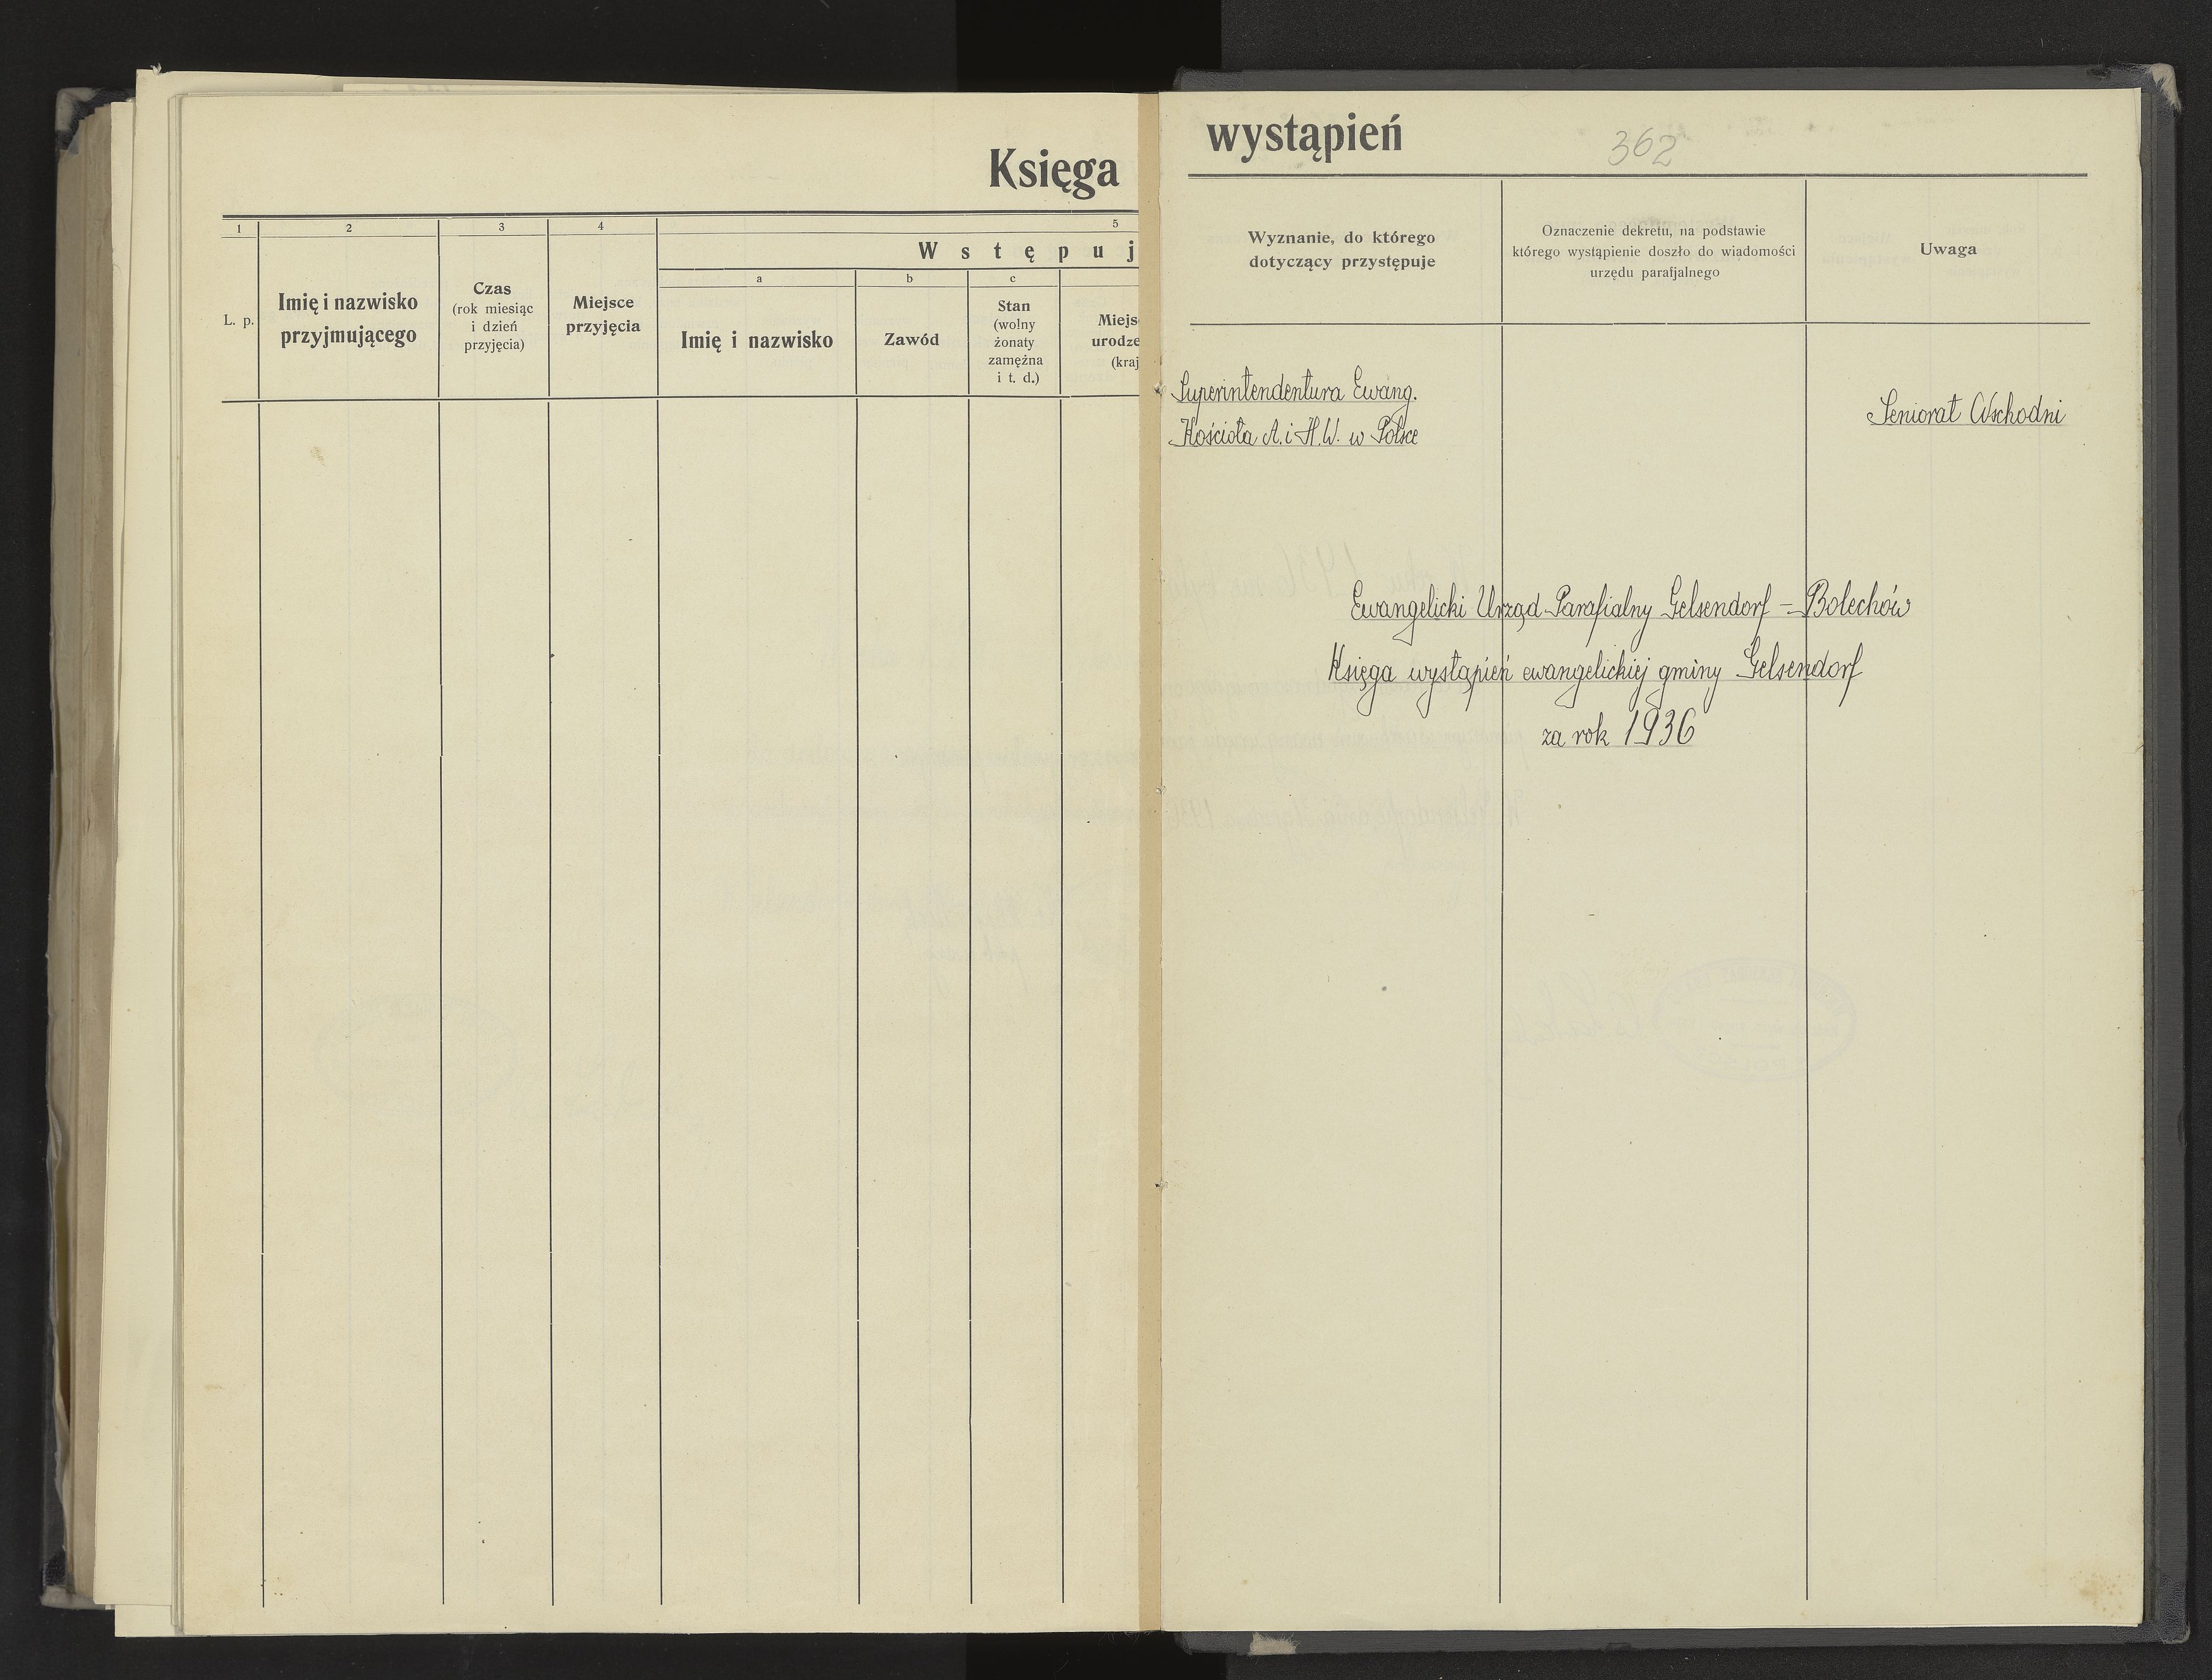 Księga
1 2 3 4 5
W s t ę p u j
a b c
L. p.
Imię i nazwisko
przyjmującego
Czas
(rok miesiąc
i dzień
przyjęcia)
Miejsce
przyjęcia
Imię i nazwisko
Zawód
Stan
(wolny
żonaty
zamężna
i t. d.)
Miejs
urodze
(kraj
wystąpień
362
Wyznanie, do którego
dotyczący przystępuje
Oznaczenie dekretu, na podstawie
którego wystąpienie doszło do wiadomości
urzędu parafjalnego
Uwaga
Superintendentura Ewang.
Kościoła A. i H.W. w Polsce
Seniorat Wschodni
Ewangelicki Urząd Parafialny Gelsendorf - Bolechów
Księga wystąpień ewangelickiej gminy Gelsendorf
za rok 1936